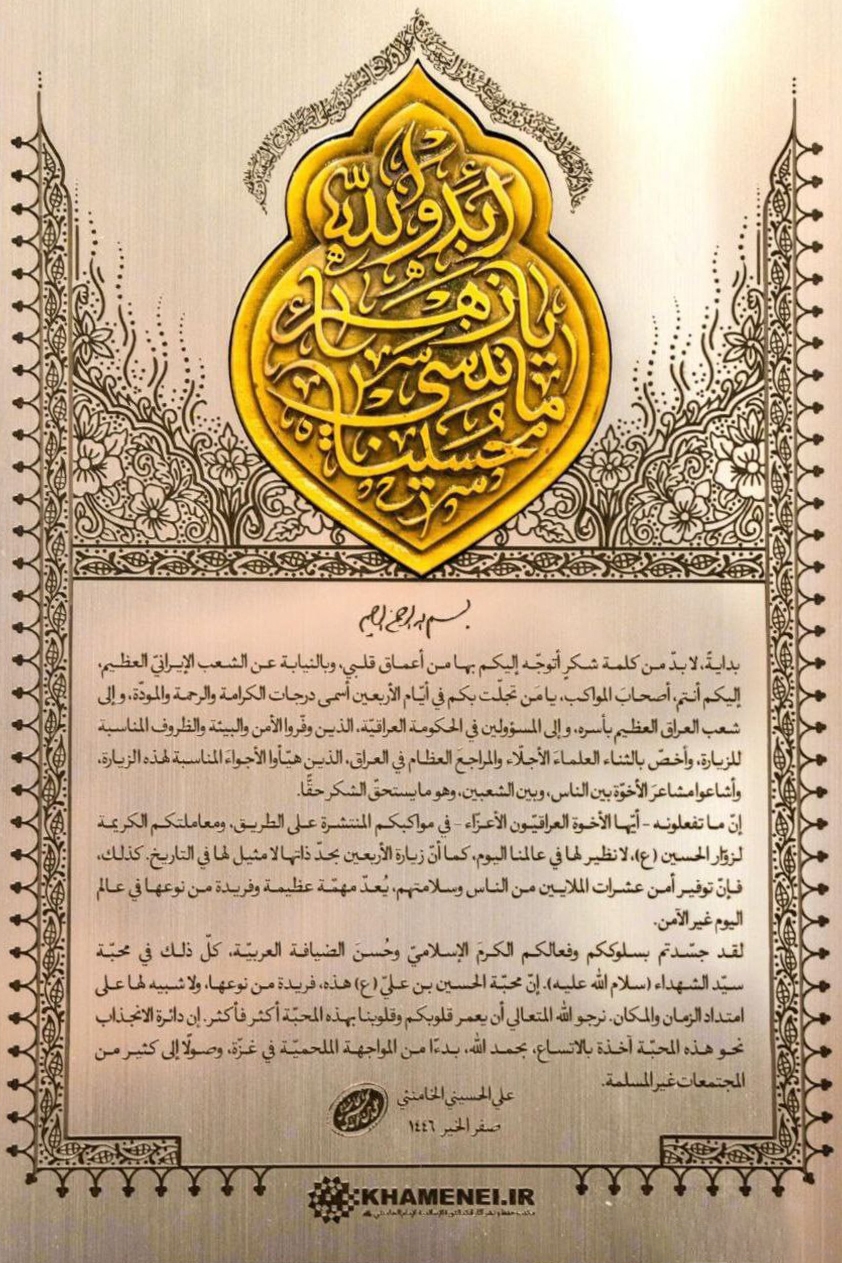 أبد والله
يا زهراء
ما ننسى
حسيناه
بسم الله الرحمن الرحيم
بدايةً، لا بدّ من كلمة شكرٍ أتوجّه إليكم بها من أعماق قلبي، وبالنيابة عن الشعب الإيرانيّ العظيم،
إليكم أنتم، أصحابَ المواكب، يا مَن تجلّت بكم في أيّام الأربعين أسمى درجات الكرامة والرحمة والمودّة، وإلى
شعب العراق العظيم بأسره، وإلى المسؤولين في الحكومة العراقيّة، الذين وفّروا الأمن والبيئة والظروف المناسبة
للزيارة، وأخصّ بالثناء العلماءَ الأجلّاء والمراجعَ العظام في العراق، الذين هيّأوا الأجواءَ المناسبة لهذه الزيارة،
وأشاعوا مشاعرَ الأخوّة بين الناس، وبين الشعبين، وهو ما يستحقّ الشكر حقًّا.
إنّ ما تفعلونه - أيّها الأخوة العراقيّون الأعزّاء - في مواكبكم المنتشرة على الطريق، ومعاملتكم الكريمة
لزوّار الحسين (ع)، لا نظير لها في عالمنا اليوم، كما أنّ زيارة الأربعين بحدّ ذاتها لا مثيل لها في التاريخ. كذلك،
فإنّ توفير أمن عشرات الملايين من الناس وسلامتهم، يُعدّ مهمّة عظيمة وفريدة من نوعها في عالم
اليوم غير الآمن.
لقد جسّدتم بسلوككم وفعالكم الكرمَ الإسلاميّ وحُسنَ الضيافة العربيّة، كلّ ذلك في محبّة
سيّد الشهداء (سلام الله عليه). إنّ محبّة الحسين بن عليّ (ع) هذه، فريدة من نوعها، ولا شبيه لها على
امتداد الزمان والمكان. نرجو الله المتعالي أن يعمر قلوبكم وقلوبنا بهذه المحبّة أكثر فأكثر. إن دائرة الانجذاب
نحو هذه المحبّة آخذة بالاتساع، بحمد الله، بدءًا من المواجهة الملحميّة في غزّة، وصولًا إلى كثير من
المجتمعات غير المسلمة.
علي الحسيني الخامنئي
صفر الخير ١٤٤٦
KHAMENEI.IR